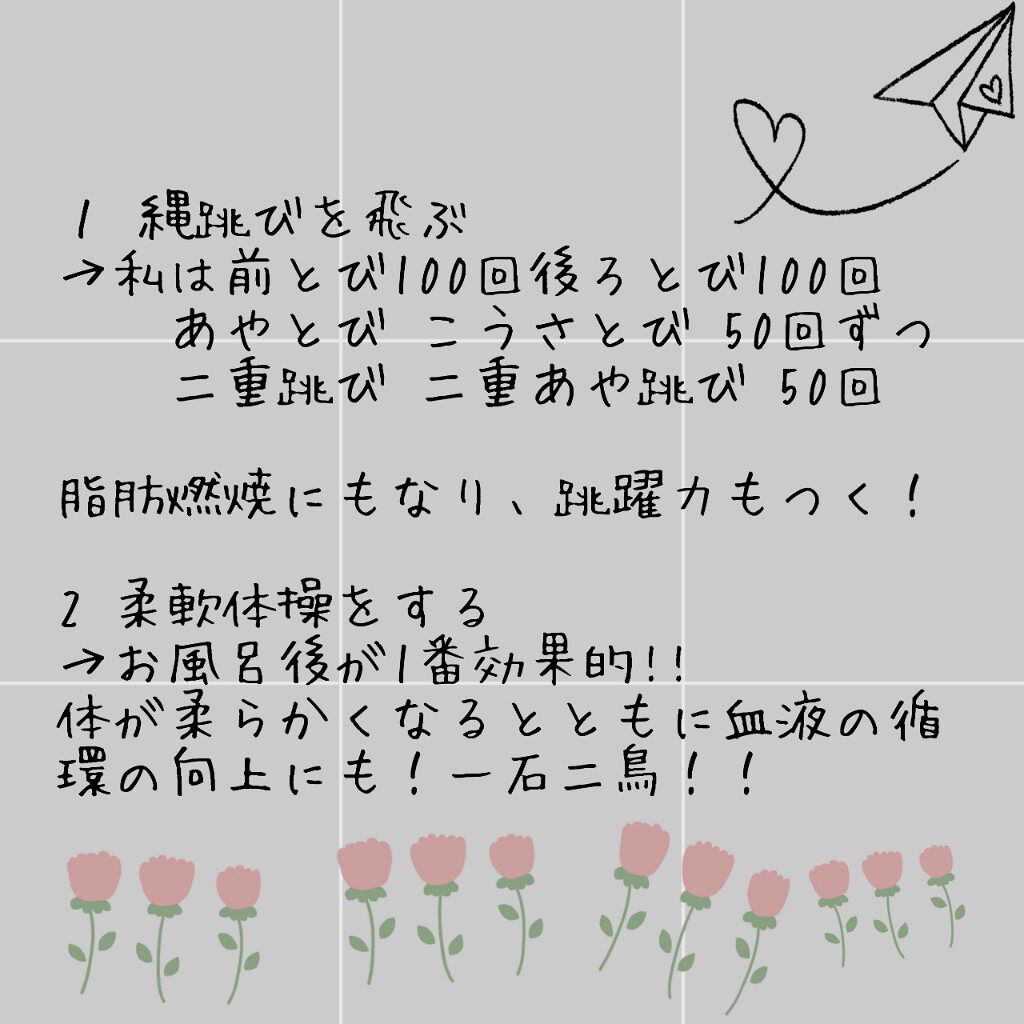 1 縄跳びを飛ぶ
→私は前とび100回後ろとび100回
あやとび こうさとび 50回ずつ
二重跳び 二重あや跳び 50回
脂肪燃焼にもなり、跳躍力もつく!
2 柔軟体操をする
→お風呂後が1番効果的!!
体が柔らかくなるとともに血液の循
環の向上にも!一石二鳥!!